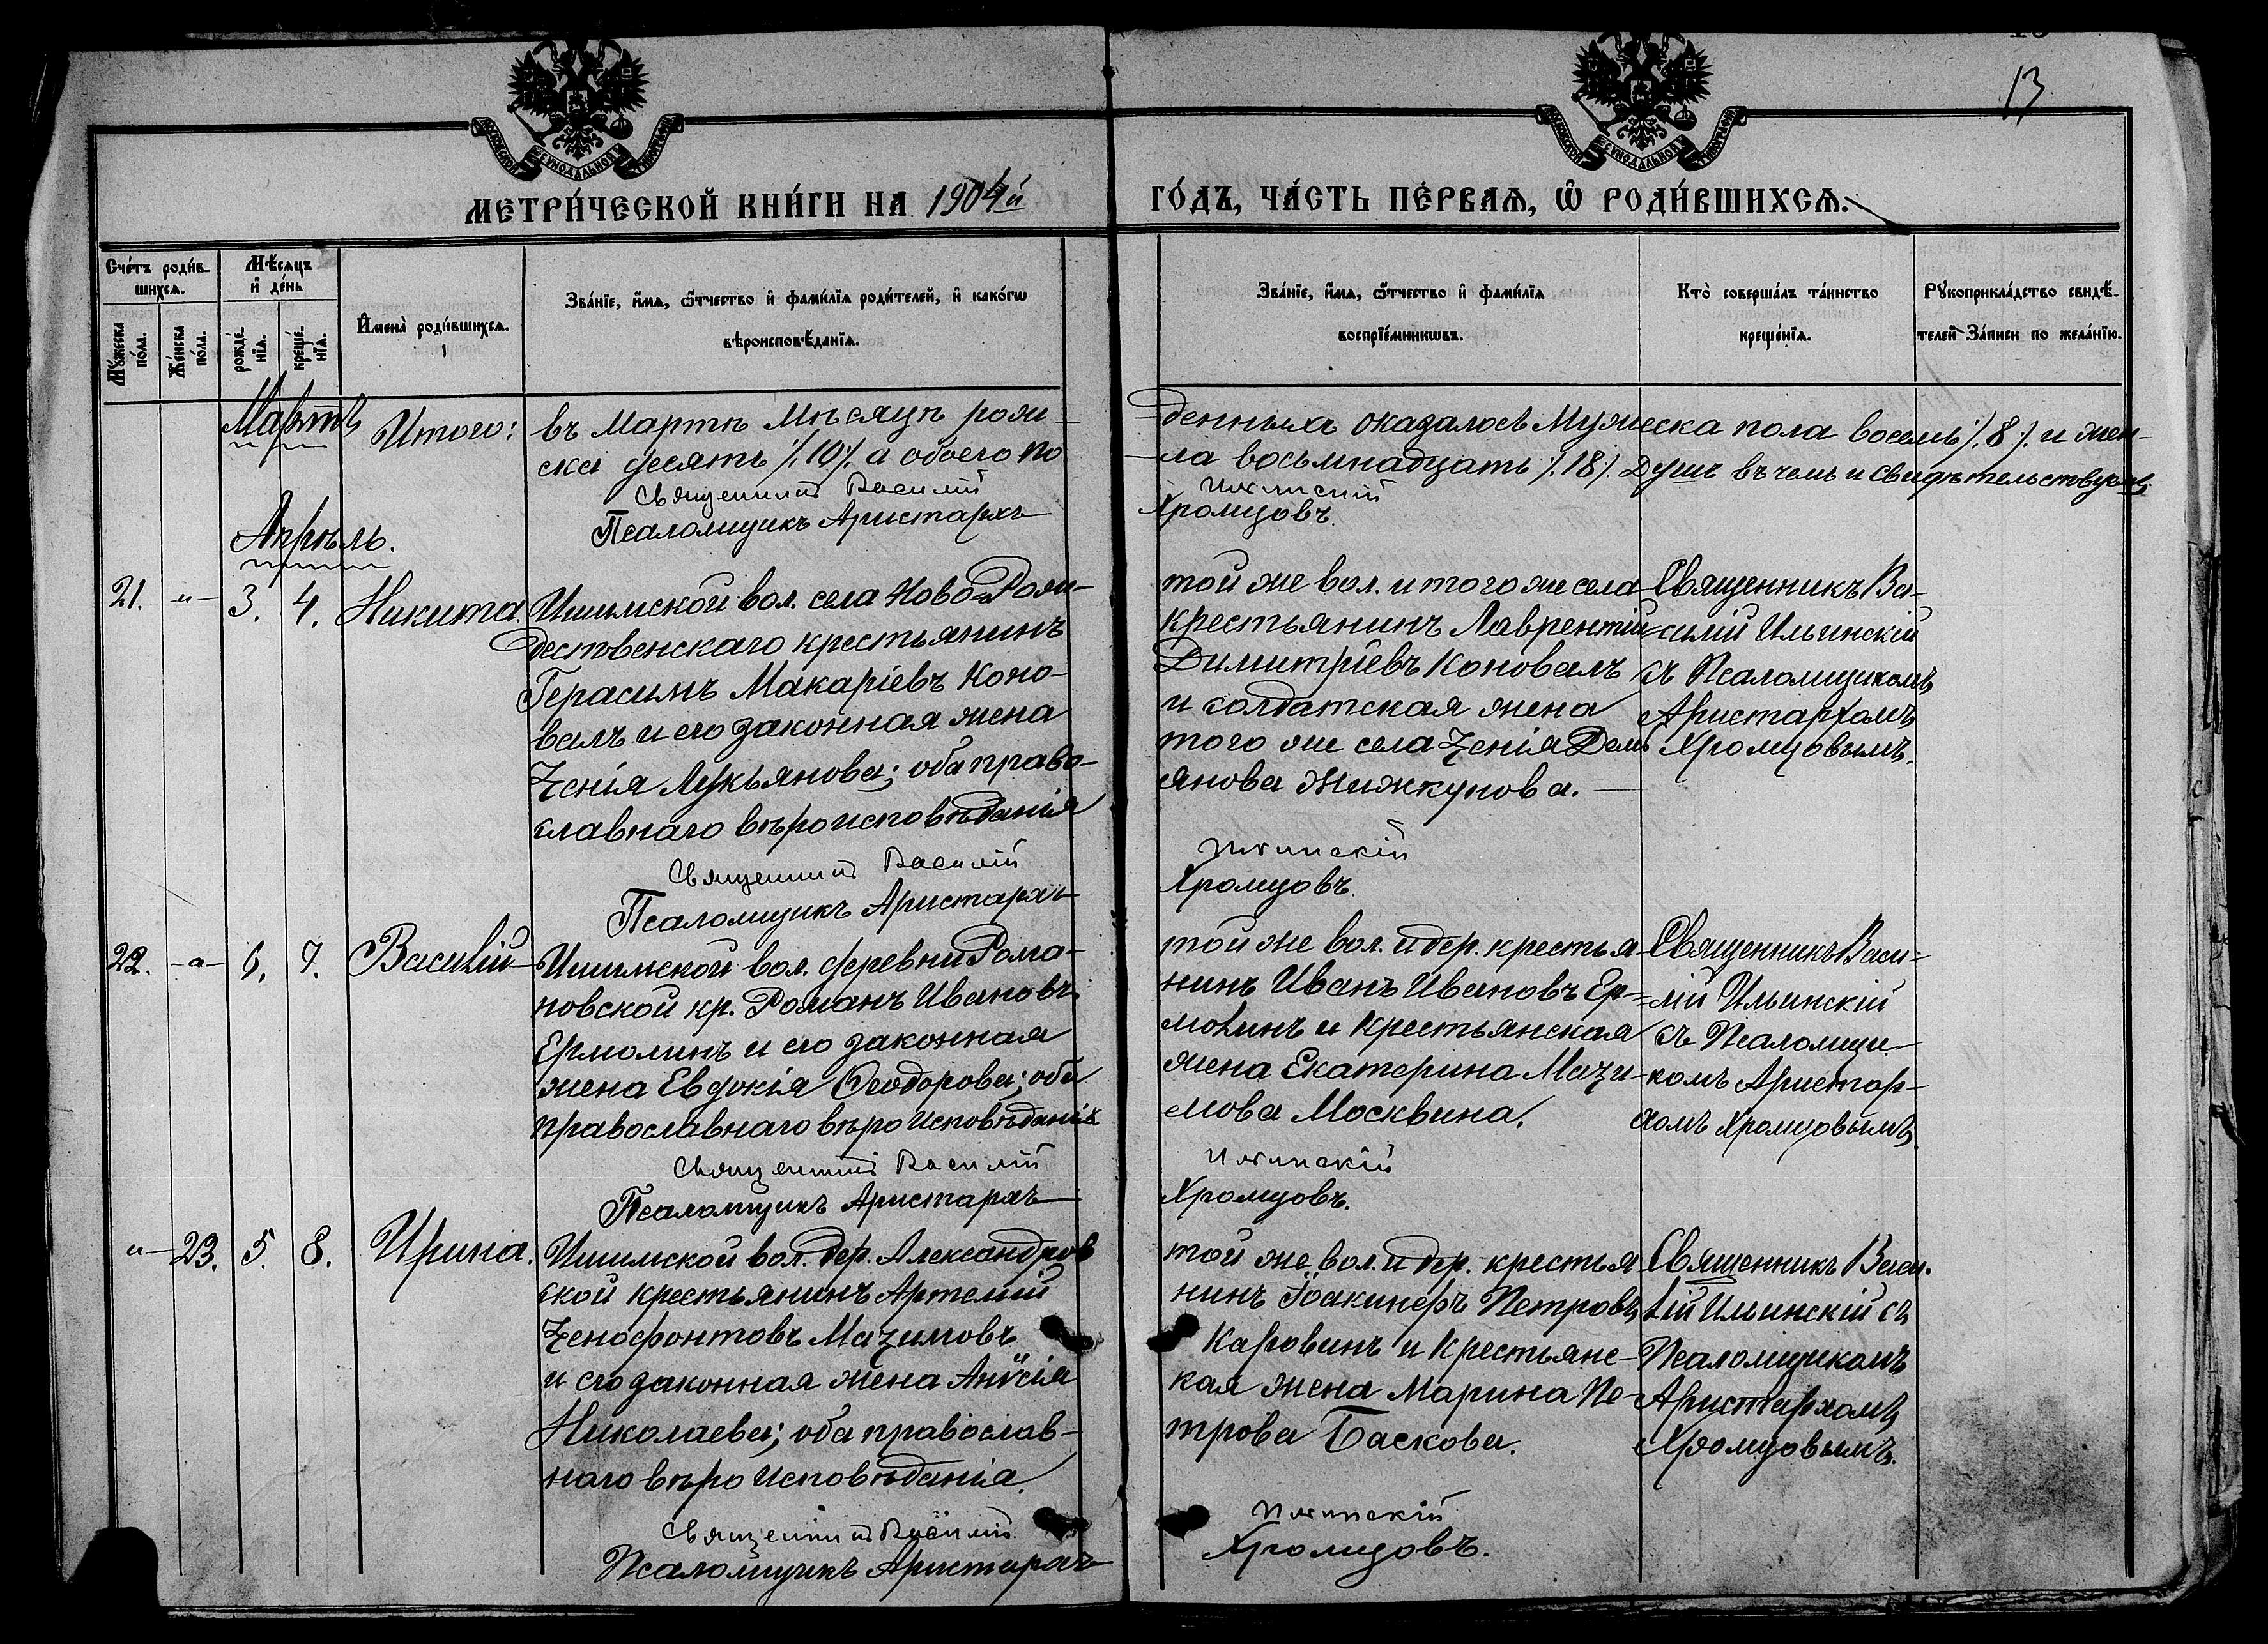 13
МОСКОВСКОЙ СѴНОДАЛЬНОЙ ТИПОГРАФІИ
МОСКОВСКОЙ СѴНОДАЛЬНОЙ ТИПОГРАФІИ
МЕТРИ́ЧЕСКОЙ КНИ́ГИ НА 1904й
ГО́ДЪ, ЧА́СТЬ ПЕ́РВАѦ, Ѡ҆ РОДИ́ВШИХСѦ.
Сче́тъ роди́в-
шихсѧ.
Мꙋ́жеска по́ла.
Же́нска по́ла.
Мѣ́сѧцъ
и҆ де́нь
рожде́-
нїѧ.
креще́-
нїѧ.
И҆мена̀ роди́вшихсѧ.
Зва́нїе, и҆́мѧ, ѻ҆́тчество и҆ фами́лїѧ роди́телей, и҆ како́гѡ
вѣроисповѣ́данїѧ.
Зва́нїе, и҆́мѧ, ѻ҆́тчество и҆ фами́лїѧ
воспрїе́мникѡвъ.
Кто̀ соверша́лъ та́инство
креще́нїѧ.
Рꙋкоприкла́дство свидѣ́-
телей За́писи по жела́нїю.
Мартъ
Итого: въ Мартѣ Мѣсяцѣ рож-
ска десять /.10/. а обоего по
Священникъ Василій
Псаломщикъ Аристархъ
денныхъ оказалось Мужеска пола восемь /.8/. и жен-
ла восьмнадцать /.18/. Душъ въ чемъ и свидѣтельствуемъ
Ильинскій
Хромцовъ.
Апрѣль.
21. -"- 3. 4. Никита.
Ишимской вол. села Ново-Рож-
дественскаго крестьянинъ
Герасимъ Макаріевъ Коно-
валъ и его законная жена
Ѯенія Лукьянова; оба право-
славнаго вѣроисповѣданія
Священникъ Василій
Псаломщикъ Аристархъ
той же вол. и того же села
крестьянинъ Лаврентій
Димитріевъ Коновалъ
и солдатская жена
того же села Ѯенія Демь
янова Жижкунова.
Ильинскій
Хромцовъ.
Священникъ Ва-
силій Ильинскій
съ Псаломщикомъ
Аристархомъ
Хромцовымъ.
22. -"- 6. 7. Василій
Ишимской вол. деревни Рома-
новской кр. Романъ Ивановъ
Ермолинъ и его законная
жена Евдокія Ѳеодорова; оба
православнаго вѣроисповѣданія
Священникъ Василій
Псаломщикъ Аристархъ
той же вол. и дер. крестья
нинъ Иванъ Ивановъ Ер-
молинъ и крестьянская
жена Екатерина Маѯи-
мова Москвина.
Ильинскій
Хромцовъ.
Священникъ Васи-
лій Ильинскій
съ Псаломщи-
комъ Аристар-
хомъ Хромцовымъ
"- 23. 5. 8. Ирина.
Ишимской вол. дер. Александров
ской крестьянинъ Артемій
Ѯенофонтовъ Маѯимовъ
и его законная жена Анѵсія
Николаева; оба православ-
наго вѣроисповѣданія.
Священникъ Василій
Псаломщикъ Аристархъ
той же вол. и дер. крестья
нинъ Іоакинфъ Петровъ
Каровинъ и крестьянс-
кая жена Марина Пе-
трова Баскова.
Ильинскій
Хромцовъ.
Священникъ Васи-
лій Ильинскій съ
Псаломщикомъ
Аристархомъ
Хромцовымъ.